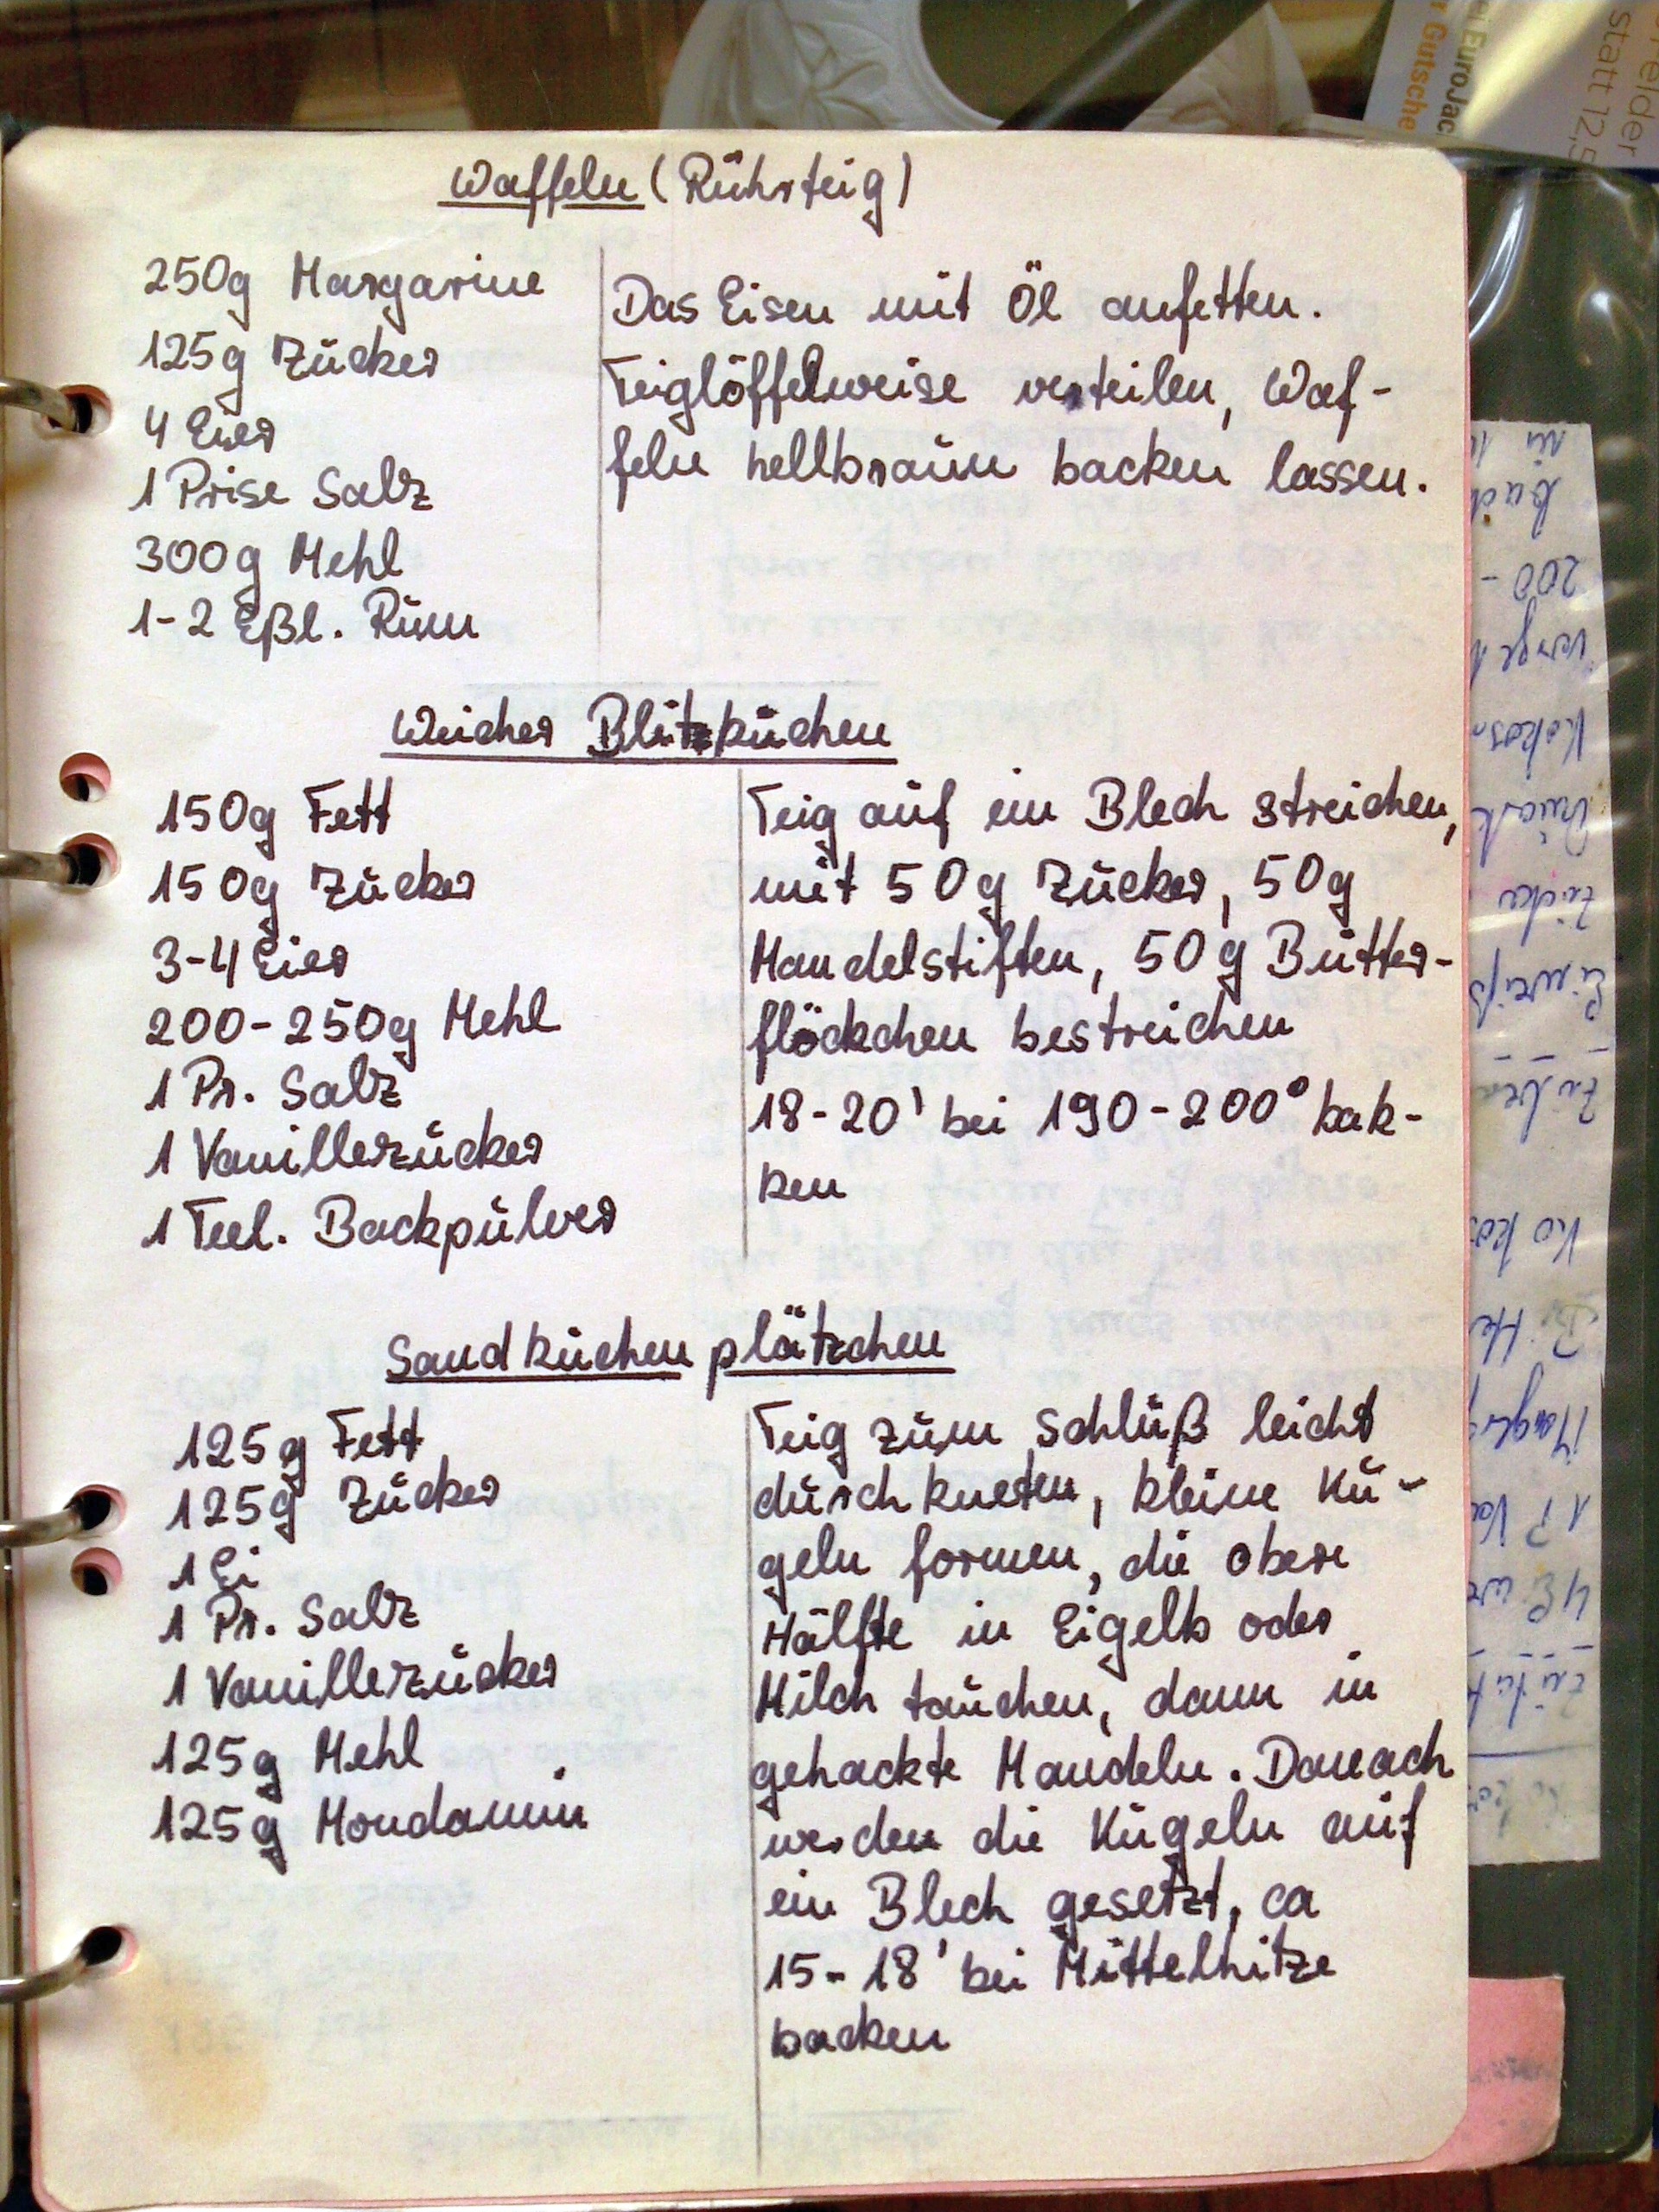 Waffeln (Rührteig)
250g Margarine
125g Zucker
4 Eier
1 Prise Salz
300g Mehl
1-2 Eßl. Rum
Das Eisen mit Öl aufetten.
Teiglöffelweise verteilen, Waf-
feln hellbraun backen lassen.
Weicher Blitzkuchen
150g Fett
150g Zucker
3-4 Eier
200-250g Mehl
1 Pr. Salz
1 Vanillezucker
1 Teel. Backpulver
Teig auf ein Blech streichen,
mit 50g Zucker, 50g
Mandelstiften, 50g Butter-
flöckchen bestreichen
18-20' bei 190-200° bak-
ken
Sandkuchenplätzchen
125g Fett
125g Zucker
1 Ei
1 Pr. Salz
1 Vanillezucker
125g Mehl
125g Mondamin
Teig zum Schluß leicht
durchkneten, kleine Ku-
geln formen, die obere
Hälfte in Eigelb oder
Milch tauchen, dann in
gehackte Mandeln. Danach
werden die Kugeln auf
ein Blech gesetzt, ca
15-18' bei Mittelhitze
backen
EuroJac
Gutsche
statt 12,5
200-
Kokos
Eiweiß